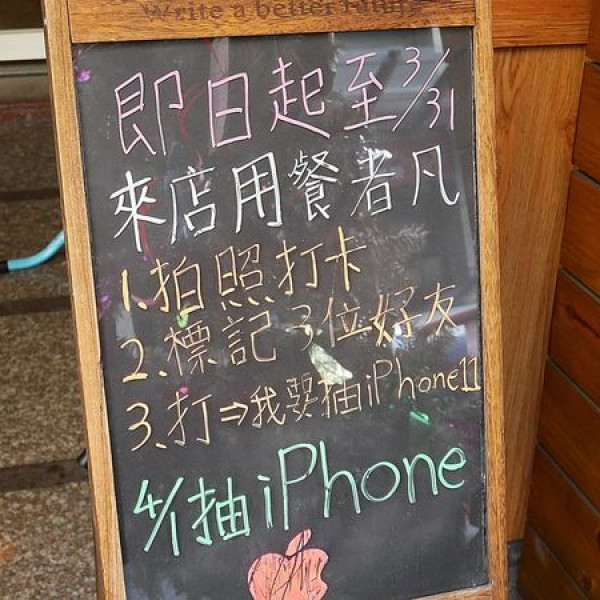 Write a better future
即日起至3/31
來店用餐者凡
1.拍照打卡
2.標記3位好友
3.打⇒我要抽iPhone11
4/1抽iPhone